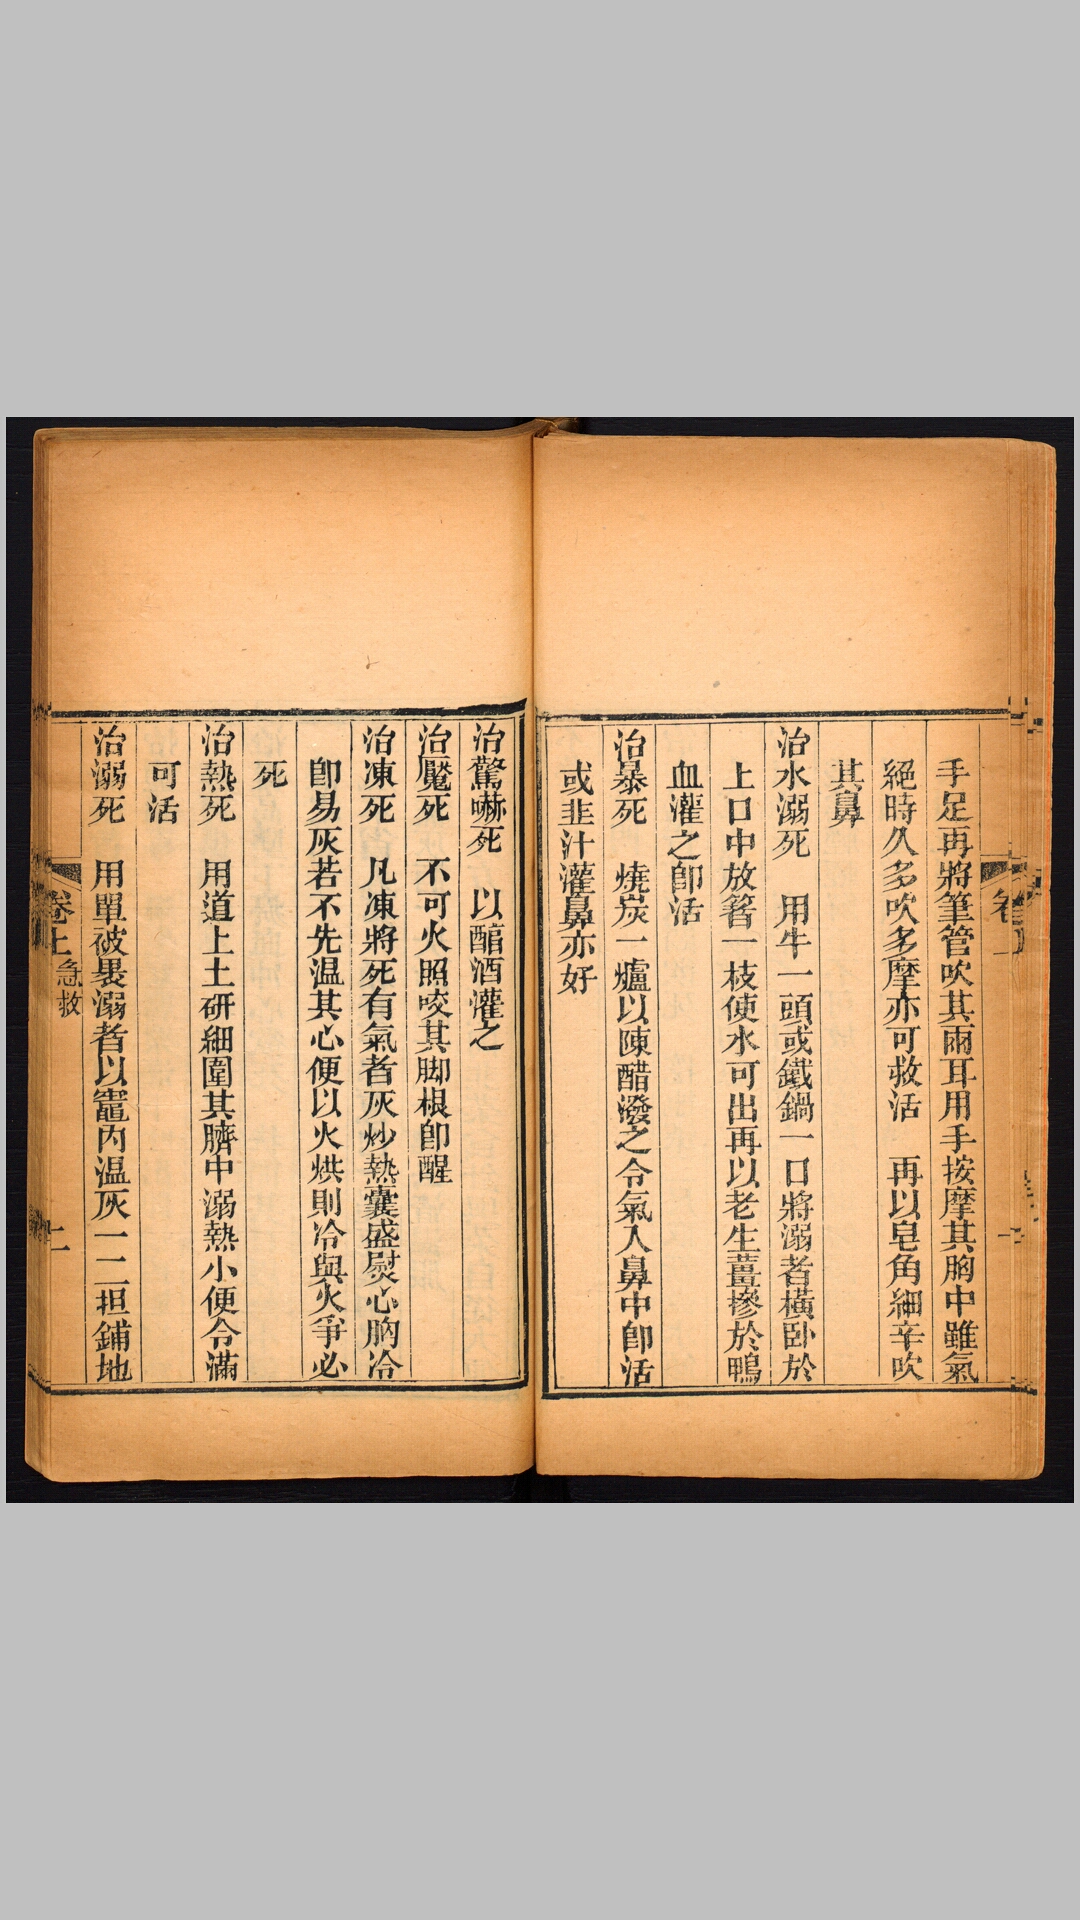 手足再將筆管吹其兩耳用手按摩其胸中雖氣
絕時久多吹多摩亦可救活　再以皂角細辛吹
其鼻
治水溺死　用牛一頭或鐵鍋一口將溺者橫臥於
上口中放簪一枝使水可出再以老生薑摻於鴨
血灌之卽活
治暴死　燒炭一爐以陳醋潑之令氣入鼻中卽活
或韭汁灌鼻亦好
治驚嚇死　以醅酒灌之
治魘死　不可火照咬其脚根卽醒
治凍死　凡凍將死有氣者灰炒熱囊盛熨心胸冷
卽易灰若不先温其心便以火烘則冷與火爭必
死
治熱死　用道上土研細圍其臍中溺熱小便令滿
可活
治溺死　用單被裹溺者以竈內温灰一二担鋪地
卷上
急救